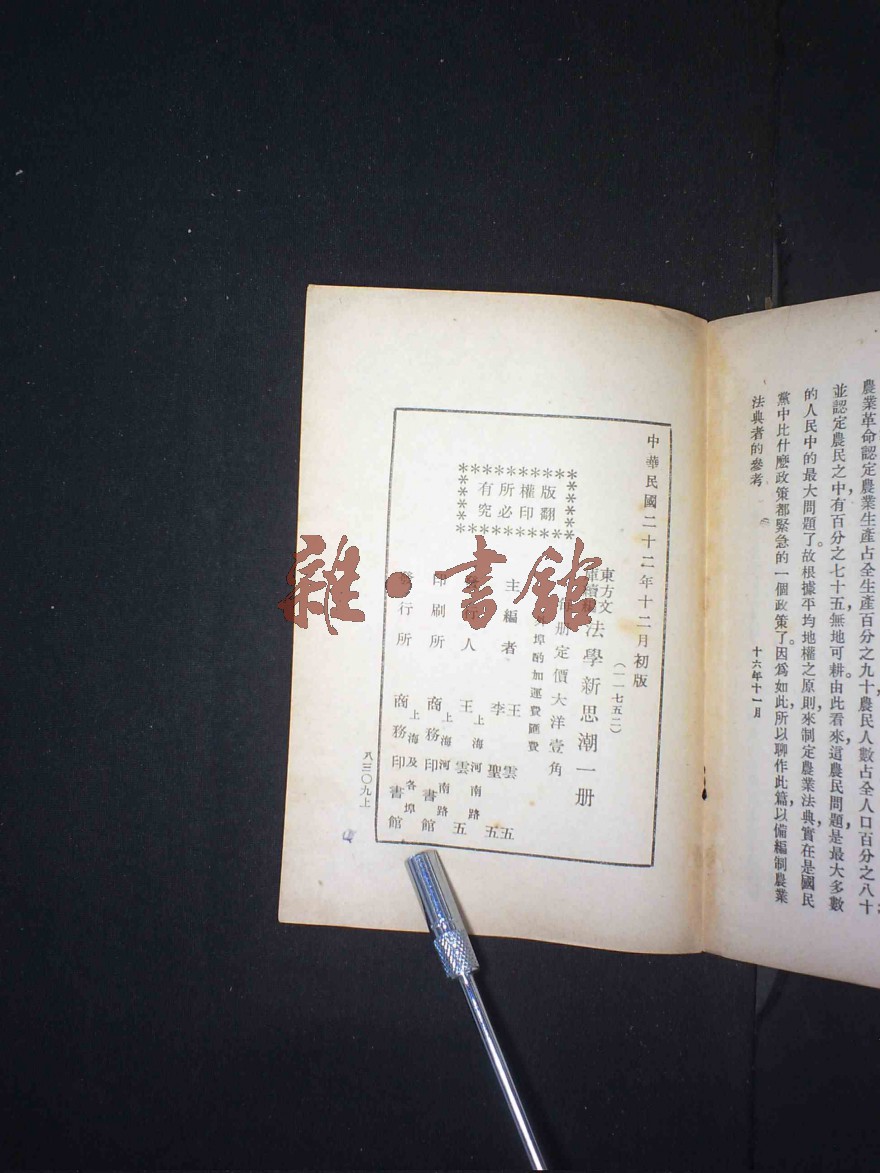 農業革命認定農業生產占全生產百分之九十農民人數占全人口百分之八十
並認定農民之中有百分之七十五,無地可耕由此看來,這農民問題,是最大多數
的人民中的最大問題了。故根據平均地權之原則,來制定農業法典,實在是國民
黨中比什麼政策都緊急的一個政策了。因爲如此,所以聊作此篇,以備編制農業
法典者的參考
十六年十一月
中華民國二十二年十二月初版
(一一七五二)
東方文
庫續編
法學新思潮一册
册定價大洋壹角
外埠酌加運費匯費
版權所有
翻印必究
主編者
王雲五
李聖五
行人
上海河南路
王雲五
印刷所
上海河南路
商務印書館
發行所
上海及各埠
商務印書館
八三〇九上
雜·書館